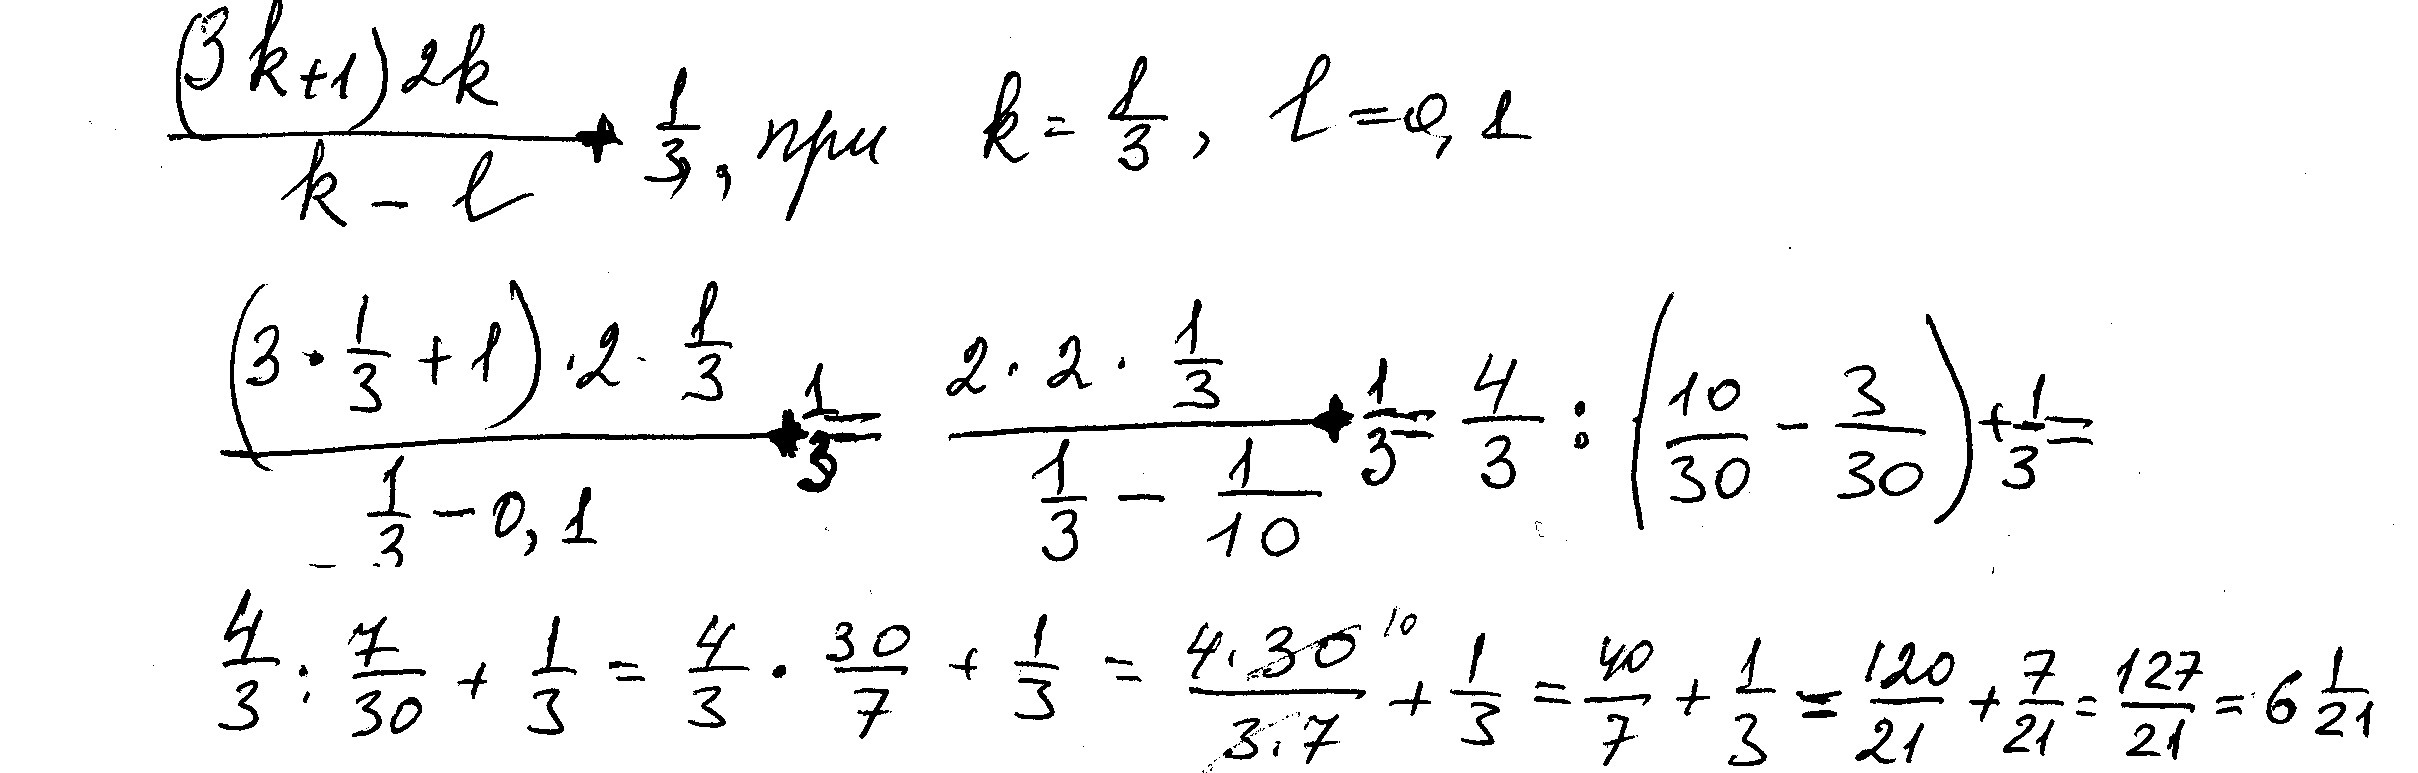 \frac{(3k+1)2k}{k-l} + \frac{1}{3}, при k = \frac{1}{3}, l = 0,1
\frac{(3 \cdot \frac{1}{3} + 1) \cdot 2 \cdot \frac{1}{3}}{\frac{1}{3} - 0,1} + \frac{1}{3} = \frac{2 \cdot 2 \cdot \frac{1}{3}}{\frac{1}{3} - \frac{1}{10}} + \frac{1}{3} = \frac{4}{3} : (\frac{10}{30} - \frac{3}{30}) + \frac{1}{3} =
\frac{4}{3} : \frac{7}{30} + \frac{1}{3} = \frac{4}{3} \cdot \frac{30}{7} + \frac{1}{3} = \frac{4 \cdot \cancel{30}^{10}}{\cancel{3} \cdot 7} + \frac{1}{3} = \frac{40}{7} + \frac{1}{3} = \frac{120}{21} + \frac{7}{21} = \frac{127}{21} = 6\frac{1}{21}